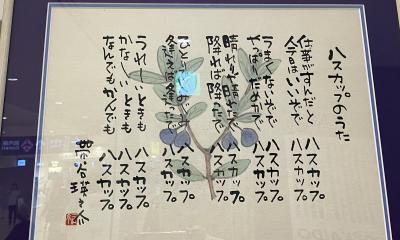 ハスカップのうた
仕事がすんだと ハスカップ
今日は ハスカップ
ハスカップ
やっぱり ハスカップ
晴れりゃ晴れたで ハスカップ
降れば降ったで ハスカップ
ひとり ハスカップ
逢えば逢ったで ハスカップ
うれしいときも ハスカップ
かなしいときも ハスカップ
なんでもかんでも ハスカップ